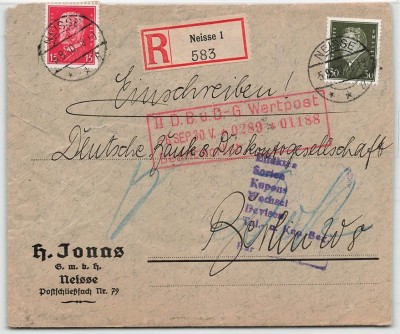 NEISSE
15 15
R
Neisse 1
583
NEISSE
50 50
Einschreiben!
II D.B.u.D-G Wertpost
SEP. 30 V. * 0289 * 01188
Deutsche Bank & Diskontogesellschaft
Sorten
Kupons
Wechsel
Devisen
Berlin W8
H. Jonas
G. m. b. H.
Neisse
Postschließfach Nr. 79